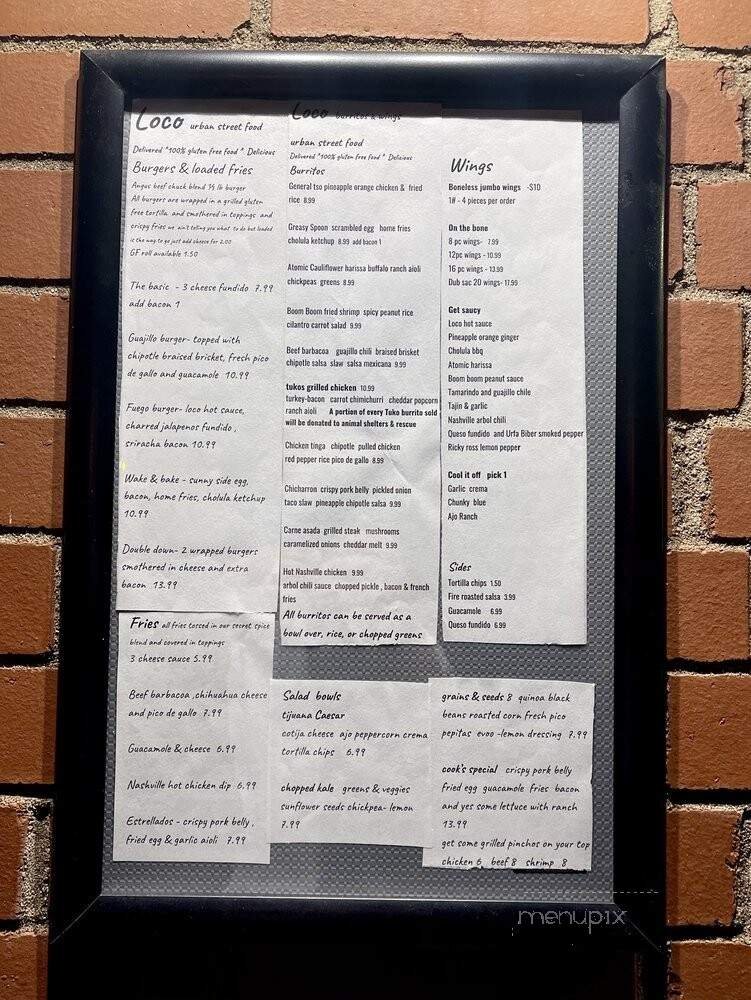 Loco urban street food
Delivered *100% gluten free food * Delicious
Burgers & loaded fries
Angus beef chuck blend ⅓ lb burger
All burgers are wrapped in a grilled gluten
free tortilla and smothered in toppings and
crispy fries we ain't telling you what to do but loaded
is the way to go just add cheese for 2.00
GF roll available 1.50
The basic - 3 cheese fundido 7.99
add bacon 1
Guajillo burger- topped with
chipotle braised brisket, fresh pico
de gallo and guacamole 10.99
Fuego burger- loco hot sauce,
charred jalapenos fundido ,
sriracha bacon 10.99
Wake & bake - sunny side egg,
bacon, home fries, cholula ketchup
10.99
Double down- 2 wrapped burgers
smothered in cheese and extra
bacon 13.99
Fries all fries tossed in our secret spice
blend and covered in toppings
3 cheese sauce 5.99
Beef barbacoa ,chihuahua cheese
and pico de gallo 7.99
Guacamole & cheese 6.99
Nashville hot chicken dip 6.99
Estrellados - crispy pork belly ,
fried egg & garlic aioli 7.99
Loco burritos & wings
urban street food
Delivered *100% gluten free food * Delicious
Burritos
General tso pineapple orange chicken & fried
rice 8.99
Greasy Spoon scrambled egg home fries
cholula ketchup 8.99 add bacon 1
Atomic Cauliflower harissa buffalo ranch aioli
chickpeas greens 8.99
Boom Boom fried shrimp spicy peanut rice
cilantro carrot salad 9.99
Beef barbacoa guajillo chili braised brisket
chipotle salsa slaw salsa mexicana 9.99
tukos grilled chicken 10.99
turkey-bacon carrot chimichurri cheddar popcorn
ranch aioli A portion of every Tuko burrito sold
will be donated to animal shelters & rescue
Chicken tinga chipotle pulled chicken
red pepper rice pico de gallo 8.99
Chicharron crispy pork belly pickled onion
taco slaw pineapple chipotle salsa 9.99
Carne asada grilled steak mushrooms
caramelized onions cheddar melt 9.99
Hot Nashville chicken 9.99
arbol chili sauce chopped pickle , bacon & french
fries
All burritos can be served as a
bowl over, rice, or chopped greens
Salad bowls
tijuana Caesar
cotija cheese ajo peppercorn crema
tortilla chips 6.99
chopped kale greens & veggies
sunflower seeds chickpea- lemon
7.99
Wings
Boneless jumbo wings -$10
1# - 4 pieces per order
On the bone
8 pc wings- 7.99
12pc wings - 10.99
16 pc wings - 13.99
Dub sac 20 wings- 17.99
Get saucy
Loco hot sauce
Pineapple orange ginger
Cholula bbq
Atomic harissa
Boom boom peanut sauce
Tamarindo and guajillo chile
Tajin & garlic
Nashville arbol chili
Queso fundido and Urfa Biber smoked pepper
Ricky ross lemon pepper
Cool it off pick 1
Garlic crema
Chunky blue
Ajo Ranch
Sides
Tortilla chips 1.50
Fire roasted salsa 3.99
Guacamole 6.99
Queso fundido 6.99
grains & seeds 8 quinoa black
beans roasted corn fresh pico
pepitas evoo -lemon dressing 7.99
cook's special crispy pork belly
fried egg guacamole fries bacon
and yes some lettuce with ranch
13.99
get some grilled pinchos on your top
chicken 6 beef 8 shrimp 8
menupix